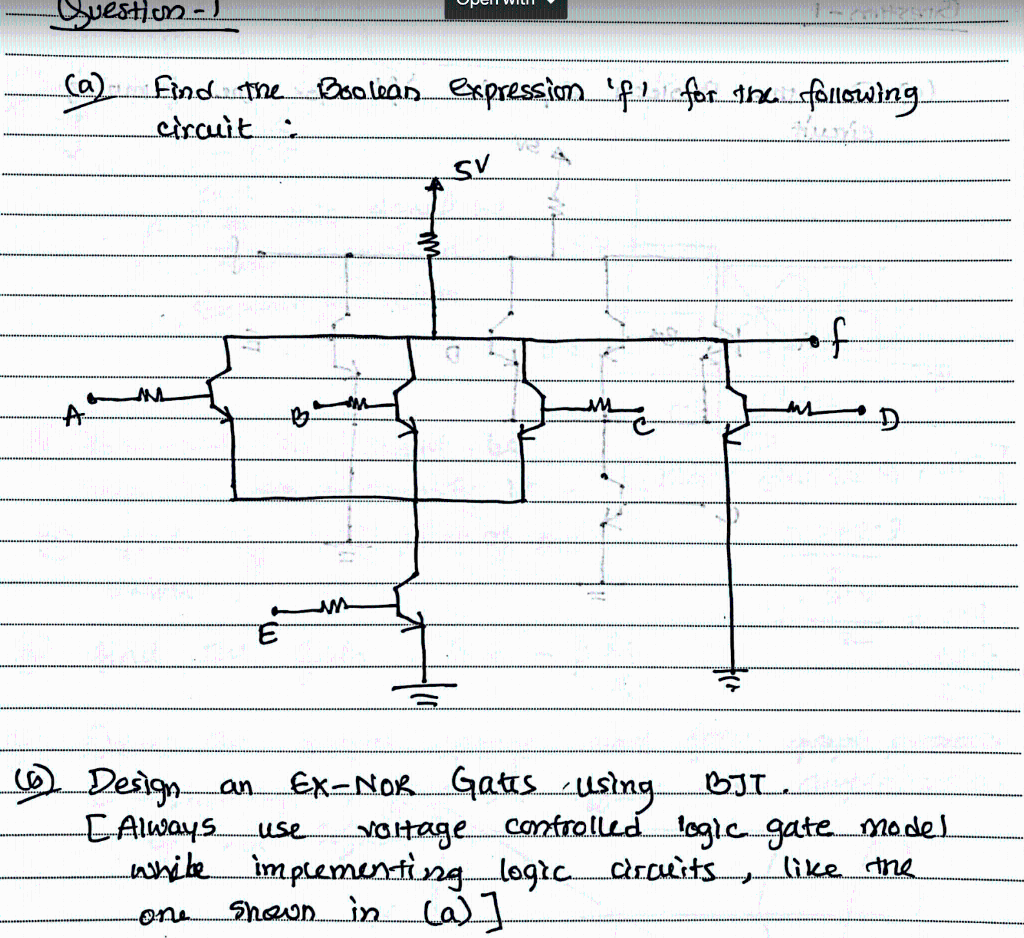 Question - 1
Open with
(a) Find the Boolean expression 'f' for the following
circuit :
5V
f
A
B
C
D
E
(b) Design an EX-NOR Gates using BJT.
[Always use voltage controlled logic gate model
while implementing logic circuits, like the
one shown in (a)]